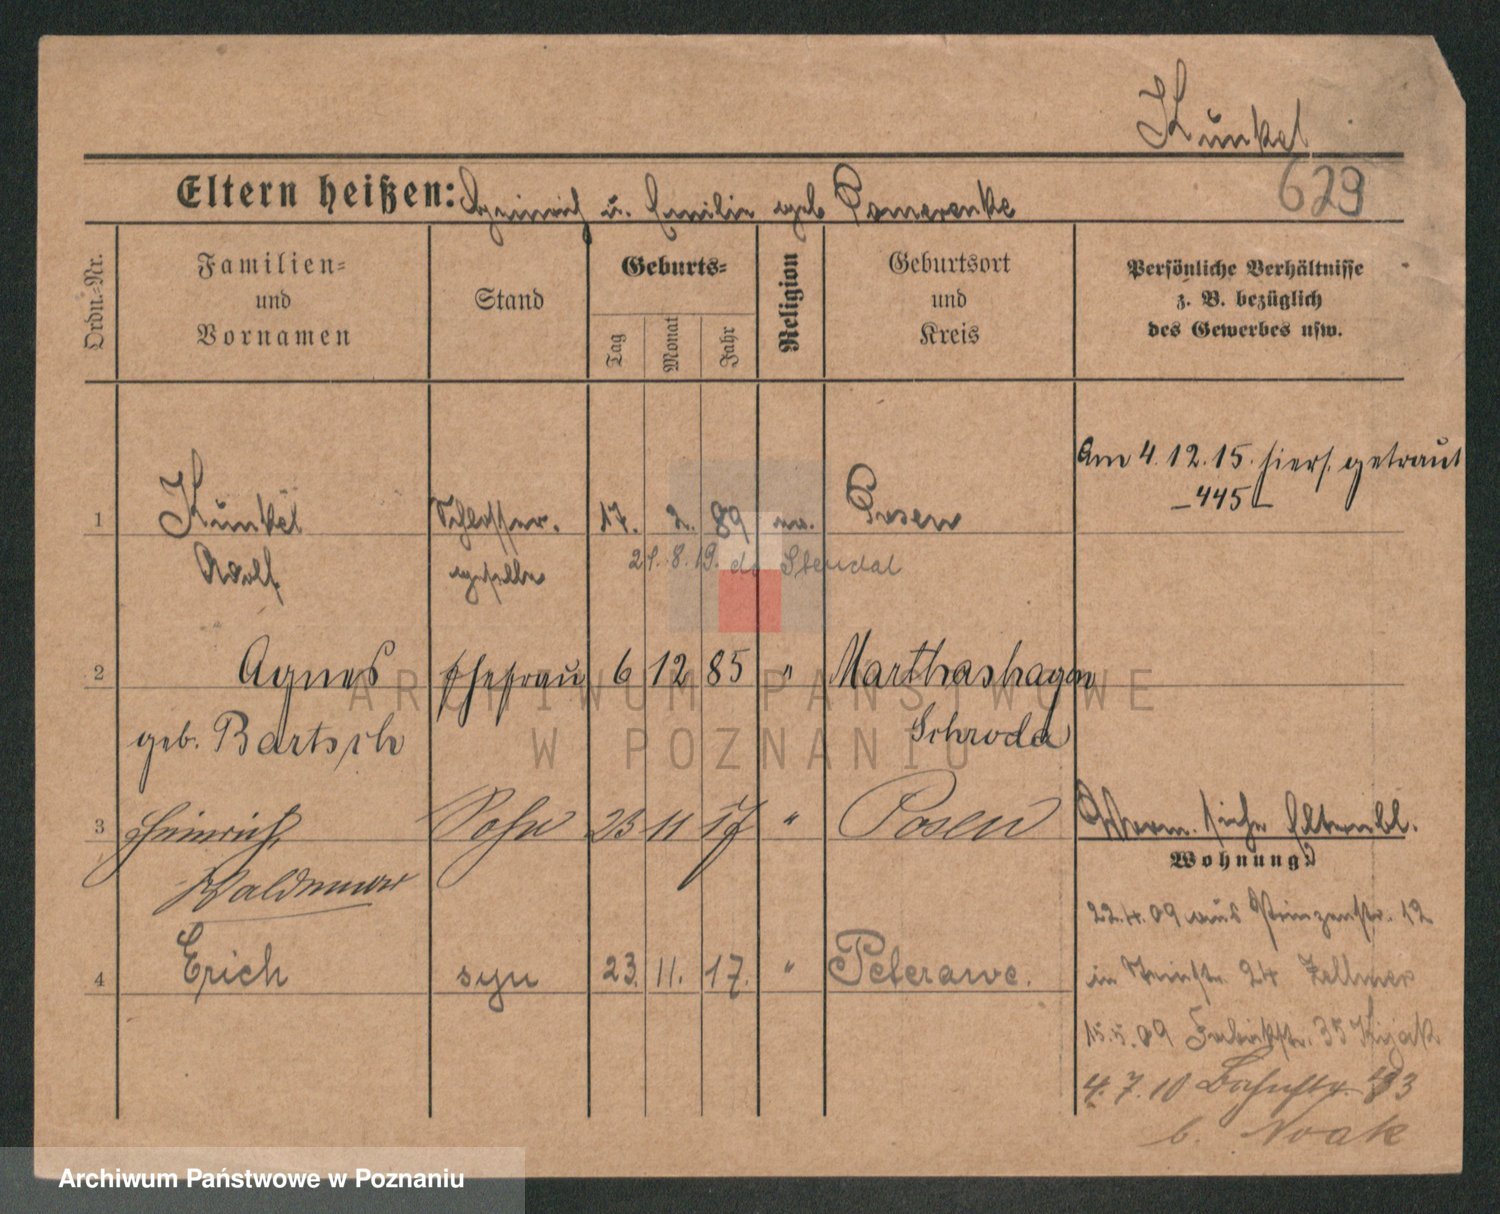 Kunkel
629
Eltern heißen: Heinrich u. Emilie geb Pomerenke
Ordn.-Nr.
Familien- und Vornamen
Stand
Geburts-
Tag
Monat
Jahr
Religion
Geburtsort und Kreis
Persönliche Verhältnisse z. B. bezüglich des Gewerbes usw.
Am 4.12.15. hiers. getraut
-445-
1 Kunkel Schlosser- 17. 2. 89 ev. Posen
Adolf geselle
21.8.19. Stendal
2 Agnes Ehefrau 6 12 85 " Marthashagen
geb. Bartsch Schroda
3 Heinrich Sohn 23 11 17 " Posen
Waldemar
4 Erich syn 23. 11. 17. " Peterawe.
Verm. siehe Elternbl.
Wohnung:
22.4.09 aus Prinzenstr. 12
in 24 Zellmer
15.5.09 Fabrikstr. 35 Kijak
4.7.10
b. Noak
ARCHIWUM PAŃSTWOWE
W POZNANIU
Archiwum Państwowe w Poznaniu